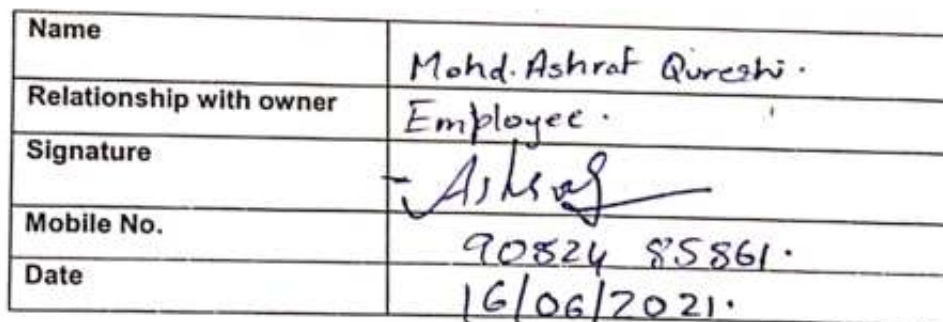 Name
Mohd. Ashraf Qureshi.
Relationship with owner
Employee.
Signature
Ashraf
Mobile No.
90824 85861.
Date
16/06/2021.